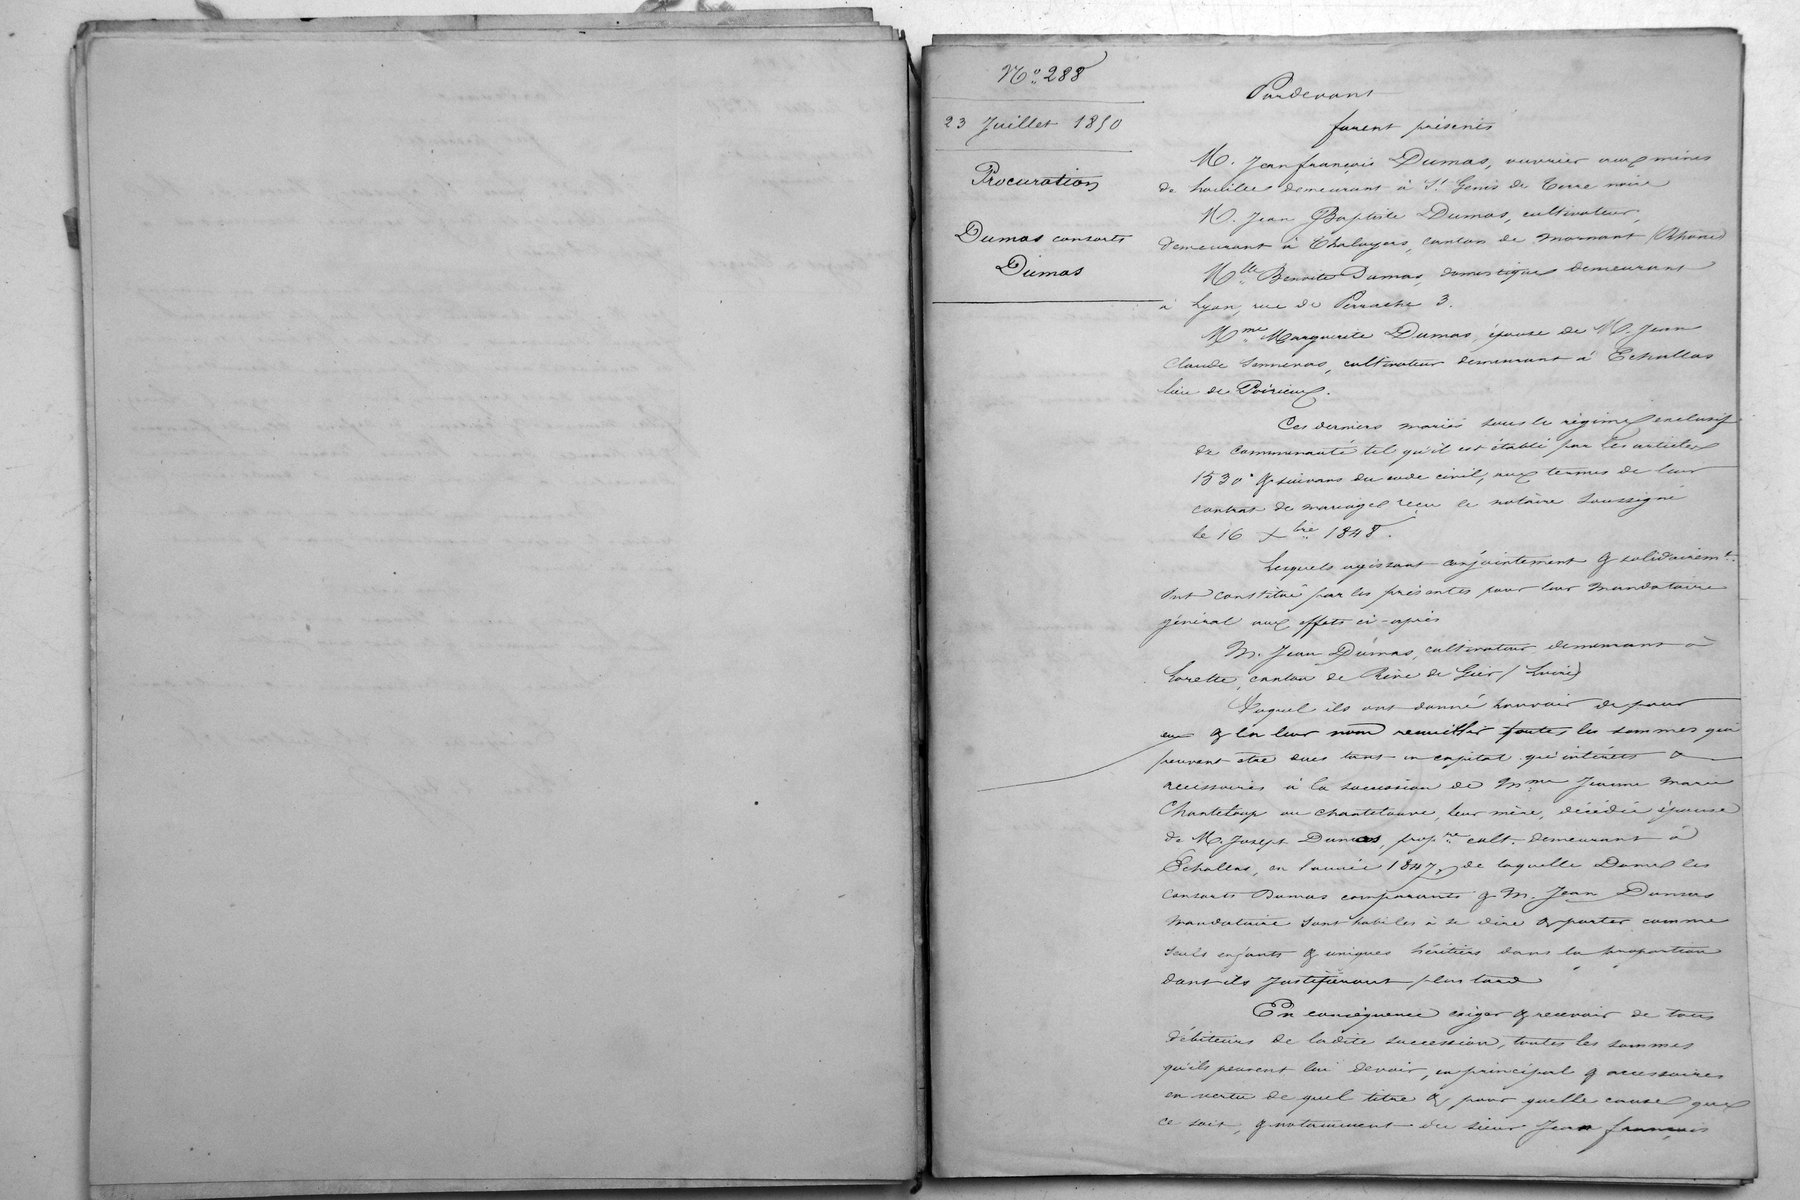 N° 288
23 Juillet 1850
Procuration
Dumas consorts
Dumas
Pardevant
furent présents
M. Jean françois Dumas, ouvrier aux mines
de houilles demeurant à St Genis de Terre noire
M. Jean Baptiste Dumas, cultivateur,
demeurant à Chalayers, canton de Mornant (Rhône)
Mlle Benoite Dumas, domestique demeurant
à Lyon, rue de Perrache 3.
Mme Marguerite Dumas, épouse de M. Jean
Claude, cultivateur demeurant à Echallas
lieu de Poirieux.
Ces derniers mariés sous le régime exclusif
de communauté tel qu'il est établi par les articles
1530 & suivans du code civil, aux termes de leur
contrat de mariage reçu le notaire soussigné
le 16 Xbre 1848.
Lesquels agissant conjointement & solidairemt
Ont constitué par les présentes pour leur mandataire
général aux effets ci-après
M. Jean Dumas, cultivateur, demeurant à
Lorette, canton de Rive de Gier (Loire)
Auquel ils ont donné pouvoir de pour
eux & en leur nom recueillir toutes les sommes qui
peuvent être dues tant en capital qu'intérêts &
accessoires à la succession de Mme Jeanne Marie
Chanteloup ou chantelouve, leur mère, décédée épouse
de M. Joseph Dumas, propre cult. demeurant à
Echallas, en l'année 1847, de laquelle Dame les
consorts Dumas comparants & M. Jean Dumas
mandataire sont habiles à se dire & porter comme
seuls enfants & uniques héritiers dans la proportion
dont ils justifieront plus tard
En conséquence exiger & recevoir de tous
débiteurs de ladite succession, toutes les sommes
qu'ils peuvent lui devoir, en principal & accessoires
en vertu de quel titre & pour quelle cause que
ce soit, & notamment du sieur Jean françois